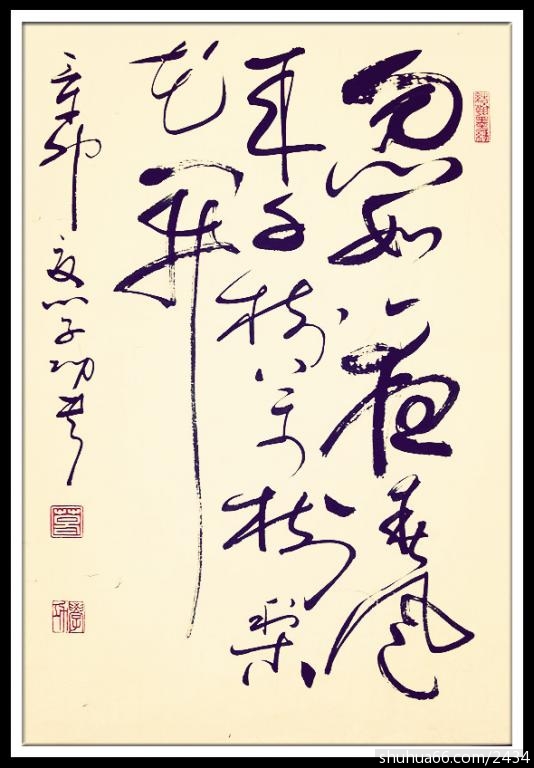 忽如一夜春风
来千树万树梨
花开
辛卯夏学功书
shuhua66.com/2434